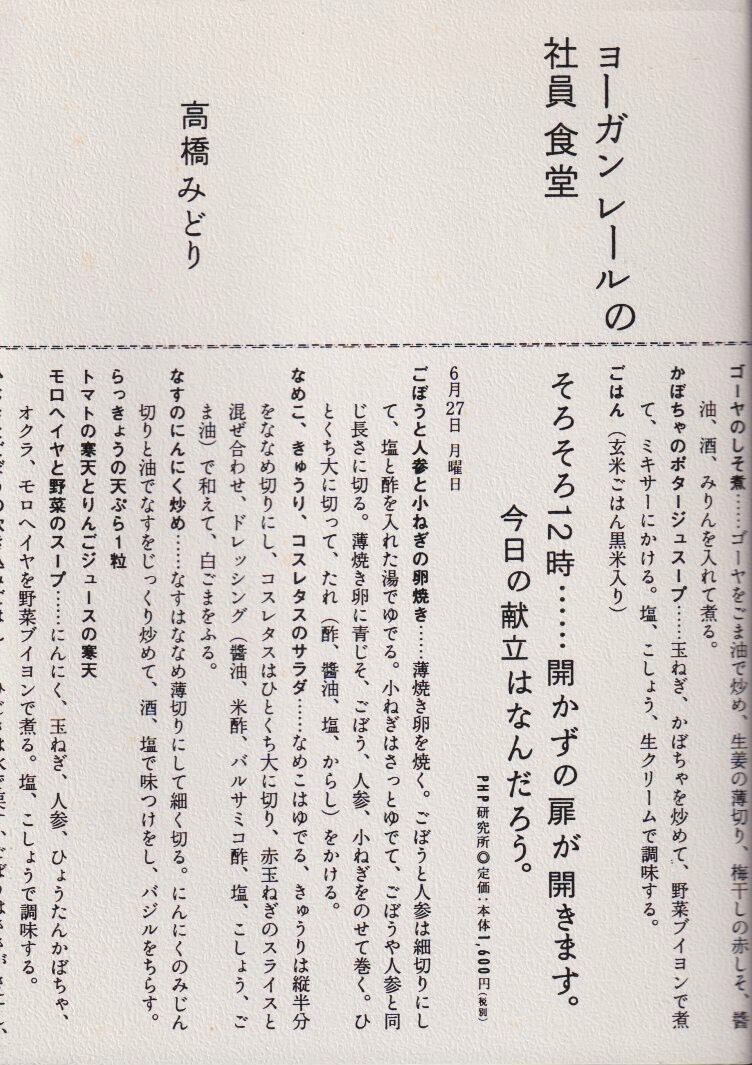 ヨーガンレールの
社員食堂
高橋みどり
ゴーヤのしそ煮……ゴーヤをごま油で炒め、生姜の薄切り、梅干しの赤しそ、醤
油、酒、みりんを入れて煮る。
かぼちゃのポタージュスープ……玉ねぎ、かぼちゃを炒めて、野菜ブイヨンで煮
て、ミキサーにかける。塩、こしょう、生クリームで調味する。
ごはん（玄米ごはん黒米入り）
そろそろ12時……開かずの扉が開きます。
今日の献立はなんだろう。
PHP研究所◎定価：本体1,600円（税別）
6月27日 月曜日
ごぼうと人参と小ねぎの卵焼き……薄焼き卵を焼く。ごぼうと人参は細切りにし
て、塩と酢を入れた湯でゆでる。小ねぎはさっとゆでて、ごぼうや人参と同
じ長さに切る。薄焼き卵に青じそ、ごぼう、人参、小ねぎをのせて巻く。ひ
とくち大に切って、たれ（酢、醤油、塩、からし）をかける。
なめこ、きゅうり、コスレタスのサラダ……なめこはゆでる、きゅうりは縦半分
をななめ切りにし、コスレタスはひとくち大に切り、赤玉ねぎのスライスと
混ぜ合わせ、ドレッシング（醤油、米酢、バルサミコ酢、塩、こしょう、ご
ま油）で和えて、白ごまをふる。
なすのにんにく炒め……なすはななめ薄切りにして細く切る。にんにくのみじん
切りと油でなすをじっくり炒めて、酒、塩で味つけをし、バジルをちらす。
らっきょうの天ぷら1粒
トマトの寒天とりんごジュースの寒天
モロヘイヤと野菜のスープ……にんにく、玉ねぎ、人参、ひょうたんかぼちゃ、
オクラ、モロヘイヤを野菜ブイヨンで煮る。塩、こしょうで調味する。